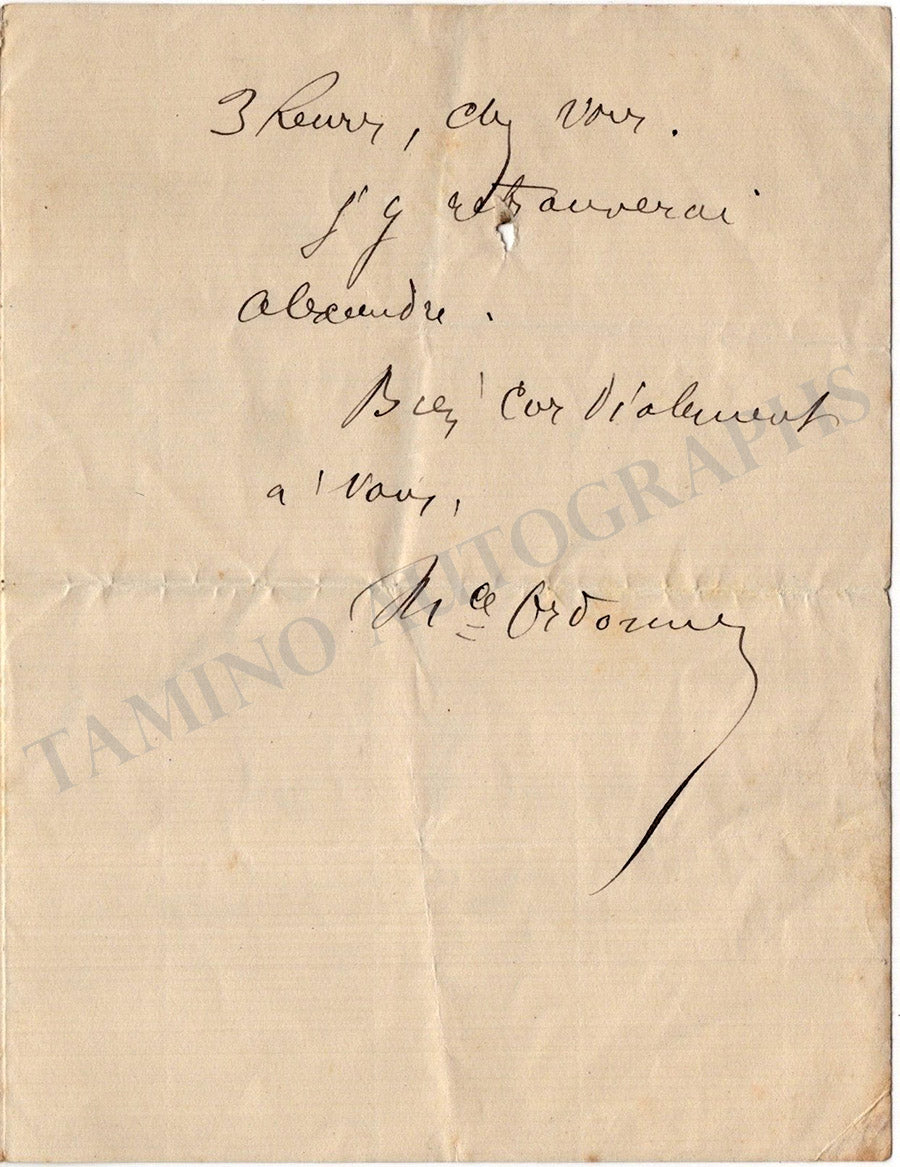 3 heures, chez vous.
J'y retrouverai
Alexandre.
Bien cordialement
à vous,
Mce Ordonneau
TAMINO AUTOGRAPHS